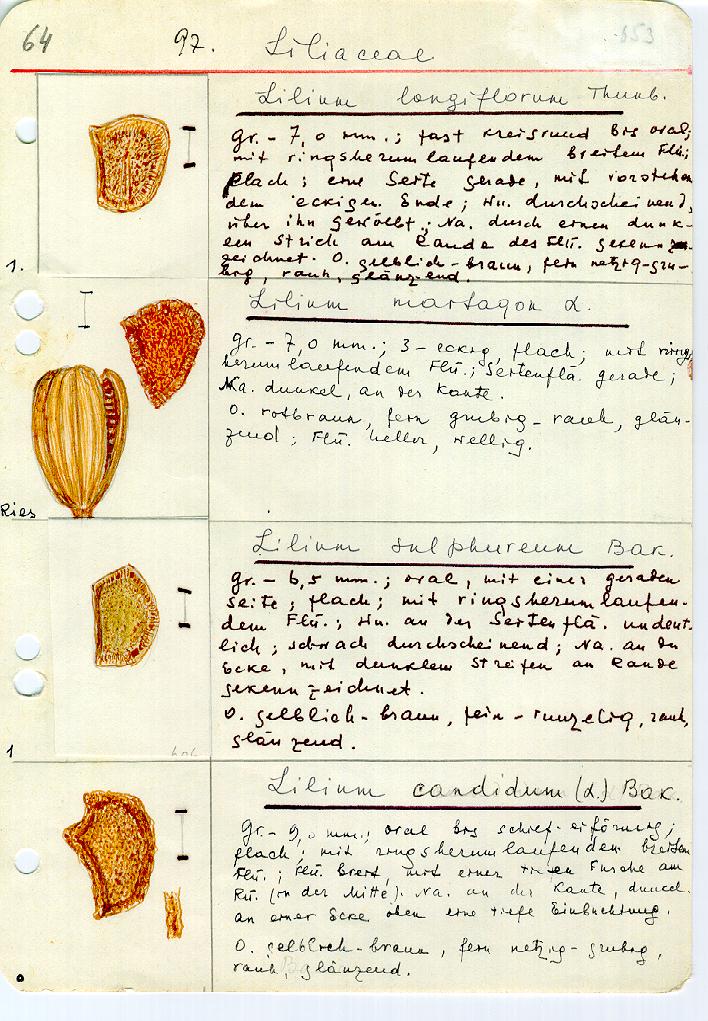 64 97. Liliaceae 653
Lilium longiflorum Thunb.
gr. - 7,0 mm.; fast kreisrund bis oval;
mit ringsherumlaufendem breitem Flü.;
flach; eine Seite gerade, mit vorstehen
dem eckigen Ende; Hü. durchscheinend,
über ihn gewölbt; Na. durch einen dunk-
en Strich am Rande des Flü. gekennz-
zeichnet. O. gelblich-braun, fein netzig-gru-
big, rauh, glänzend.
1.
Lilium martagon L.
gr. - 7,0 mm.; 3-eckig, flach; mit rings
herumlaufendem Flü.; Seitenflä. gerade;
Na. dunkel, an der Kante.
O. rotbraun, fein grubig-rauh, glän-
zend; Flü. heller, wellig.
Ries
Lilium sulphureum Bak.
gr. - 6,5 mm.; oval, mit einer geraden
Seite; flach; mit ringsherumlaufen-
dem Flü.; an der Seitenflä. undeut-
lich; schwach durchscheinend; Na. an der
Ecke, mit dunklem Streifen an Rande
gekennzeichnet.
O. gelblich-braun, fein-runzelig, rauh,
glänzend.
1
Lilium candidum (L.) Bak.
gr. - 9,0 mm.; oval bis schief-eiförmig;
flach; mit ringsherumlaufendem breitem
Flü.; Flü. breit, mit einer Furche am
Rü. (in der Mitte). Na. an der Kante, dunkel.
an einer Ecke oben eine tiefe Einbuchtung.
O. gelblich-braun, fein netzig-grubig,
rauh, glänzend.